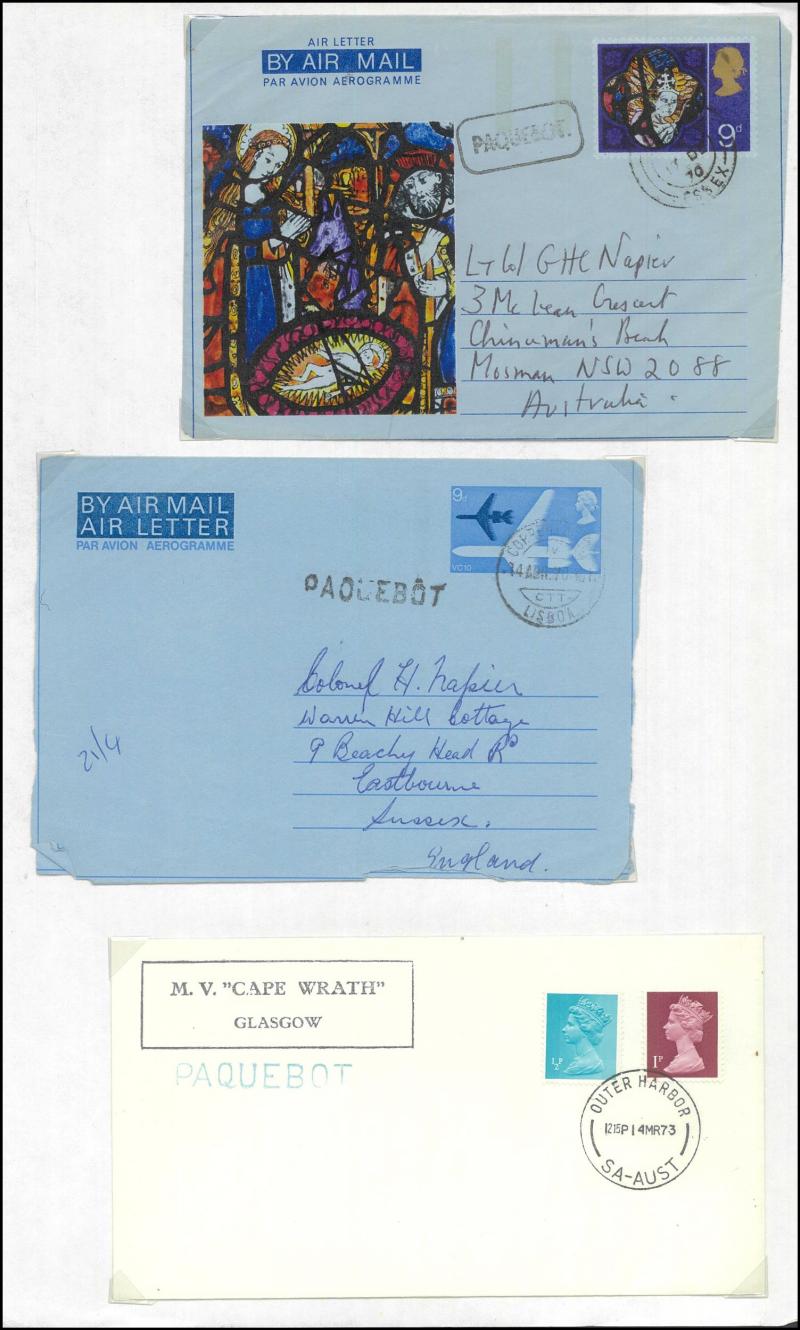 AIR LETTER
BY AIR MAIL
PAR AVION AEROGRAMME
9d
PAQUEBOT.
70
ESSEX
Lt Col GHC Napier
3 McLean Crescent
Chinaman's Beach
Mosman NSW 2088
Australia.
BY AIR MAIL
AIR LETTER
PAR AVION AEROGRAMME
9d
VC10
PAQUEBÔT
CTT
LISBOA
Colonel H. Napier
Warren Hill Cottage
9 Beachy Head Rd
Eastbourne
Sussex.
England.
21/4
M. V. "CAPE WRATH"
GLASGOW
PAQUEBOT
½P
1P
OUTER HARBOR
1215P 14MR73
SA-AUST